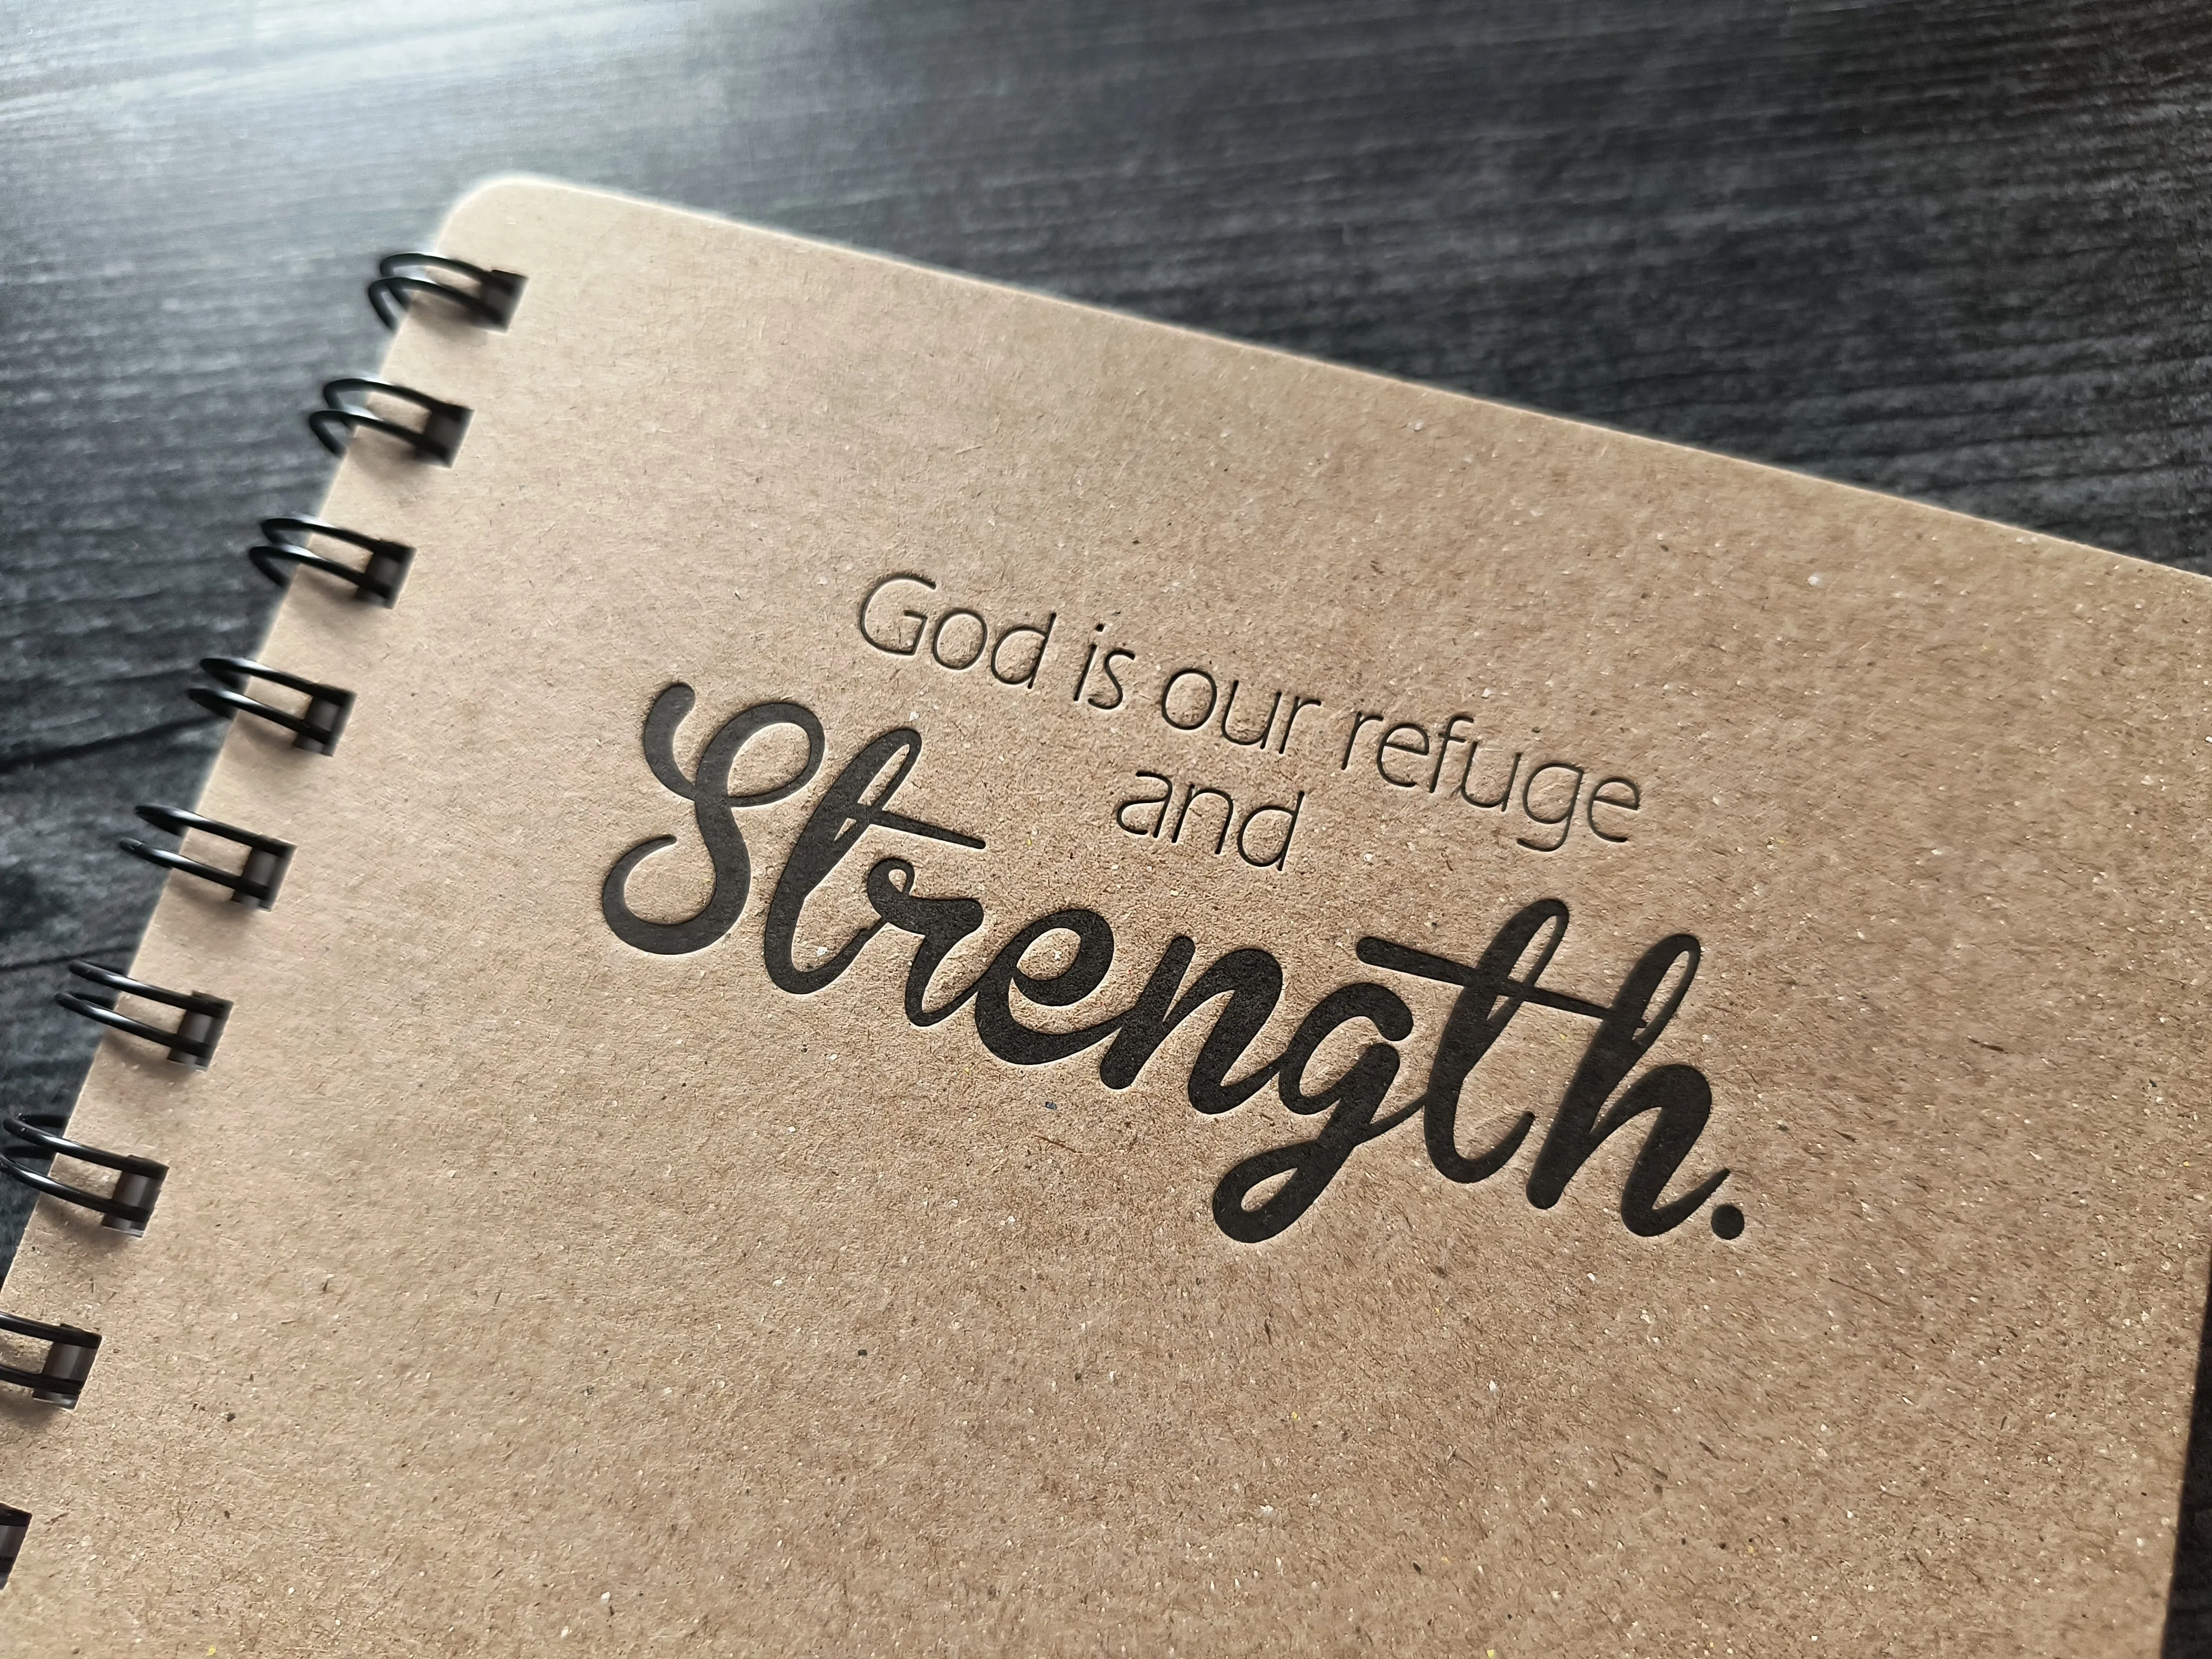 God is our refuge
and
Strength.